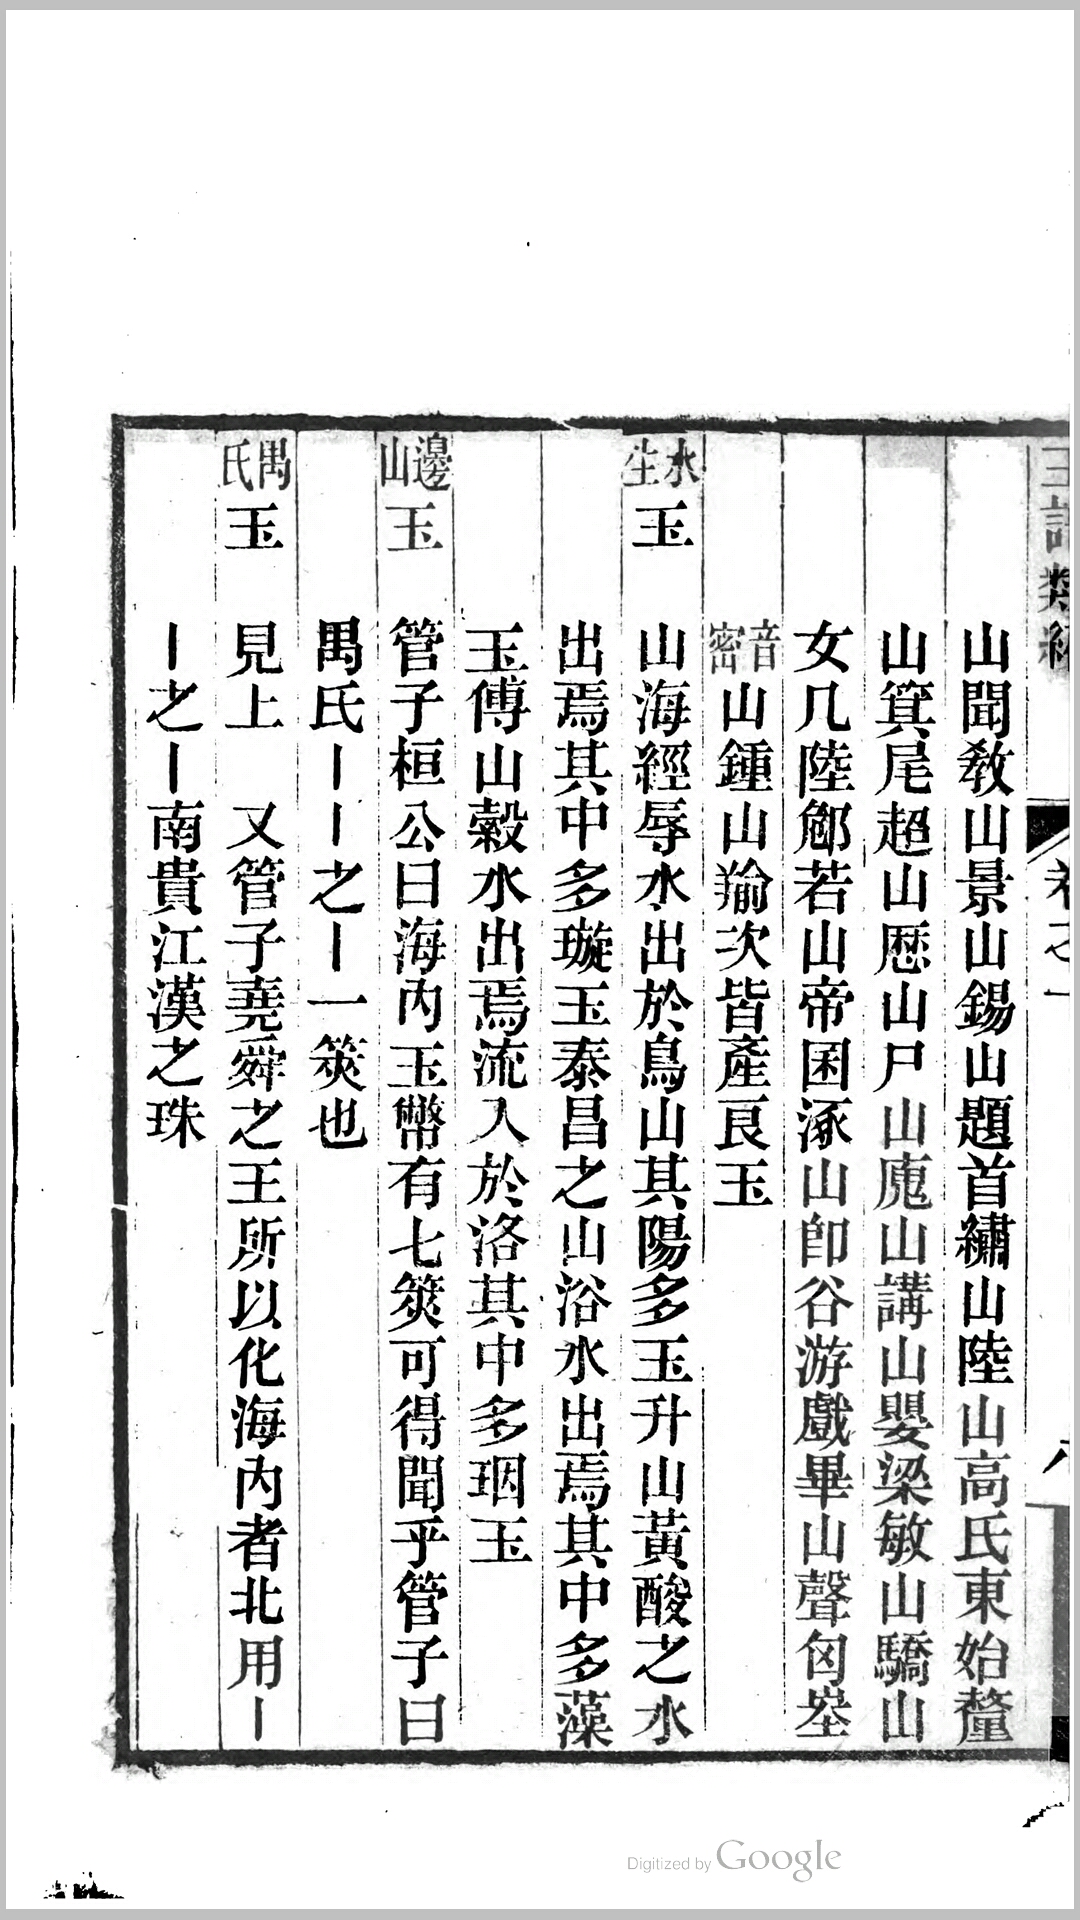 山聞教山景山錫山題首繡山陸山高氏東始釐
山箕尾超山厯山尸山廆山講山嬰梁敏山驕山
女几陸䣀若山帝囷涿山卽谷游戲畢山聲匈㟭
音密山鍾山羭次皆產艮玉
水生玉 山海經辱水出於鳥山其陽多玉升山黃酸之水
出焉其中多璇玉泰昌之山浴水出焉其中多藻
玉傅山榖水出焉流入於洛其中多珚玉
邊山玉 管子桓公曰海內玉幣有七筴可得聞乎管子曰
禺氏丨丨之丨一筴也
禺氏玉 見上 又管子堯舜之王所以化海內者北用丨
丨之丨南貴江漢之珠
Digitized by Google